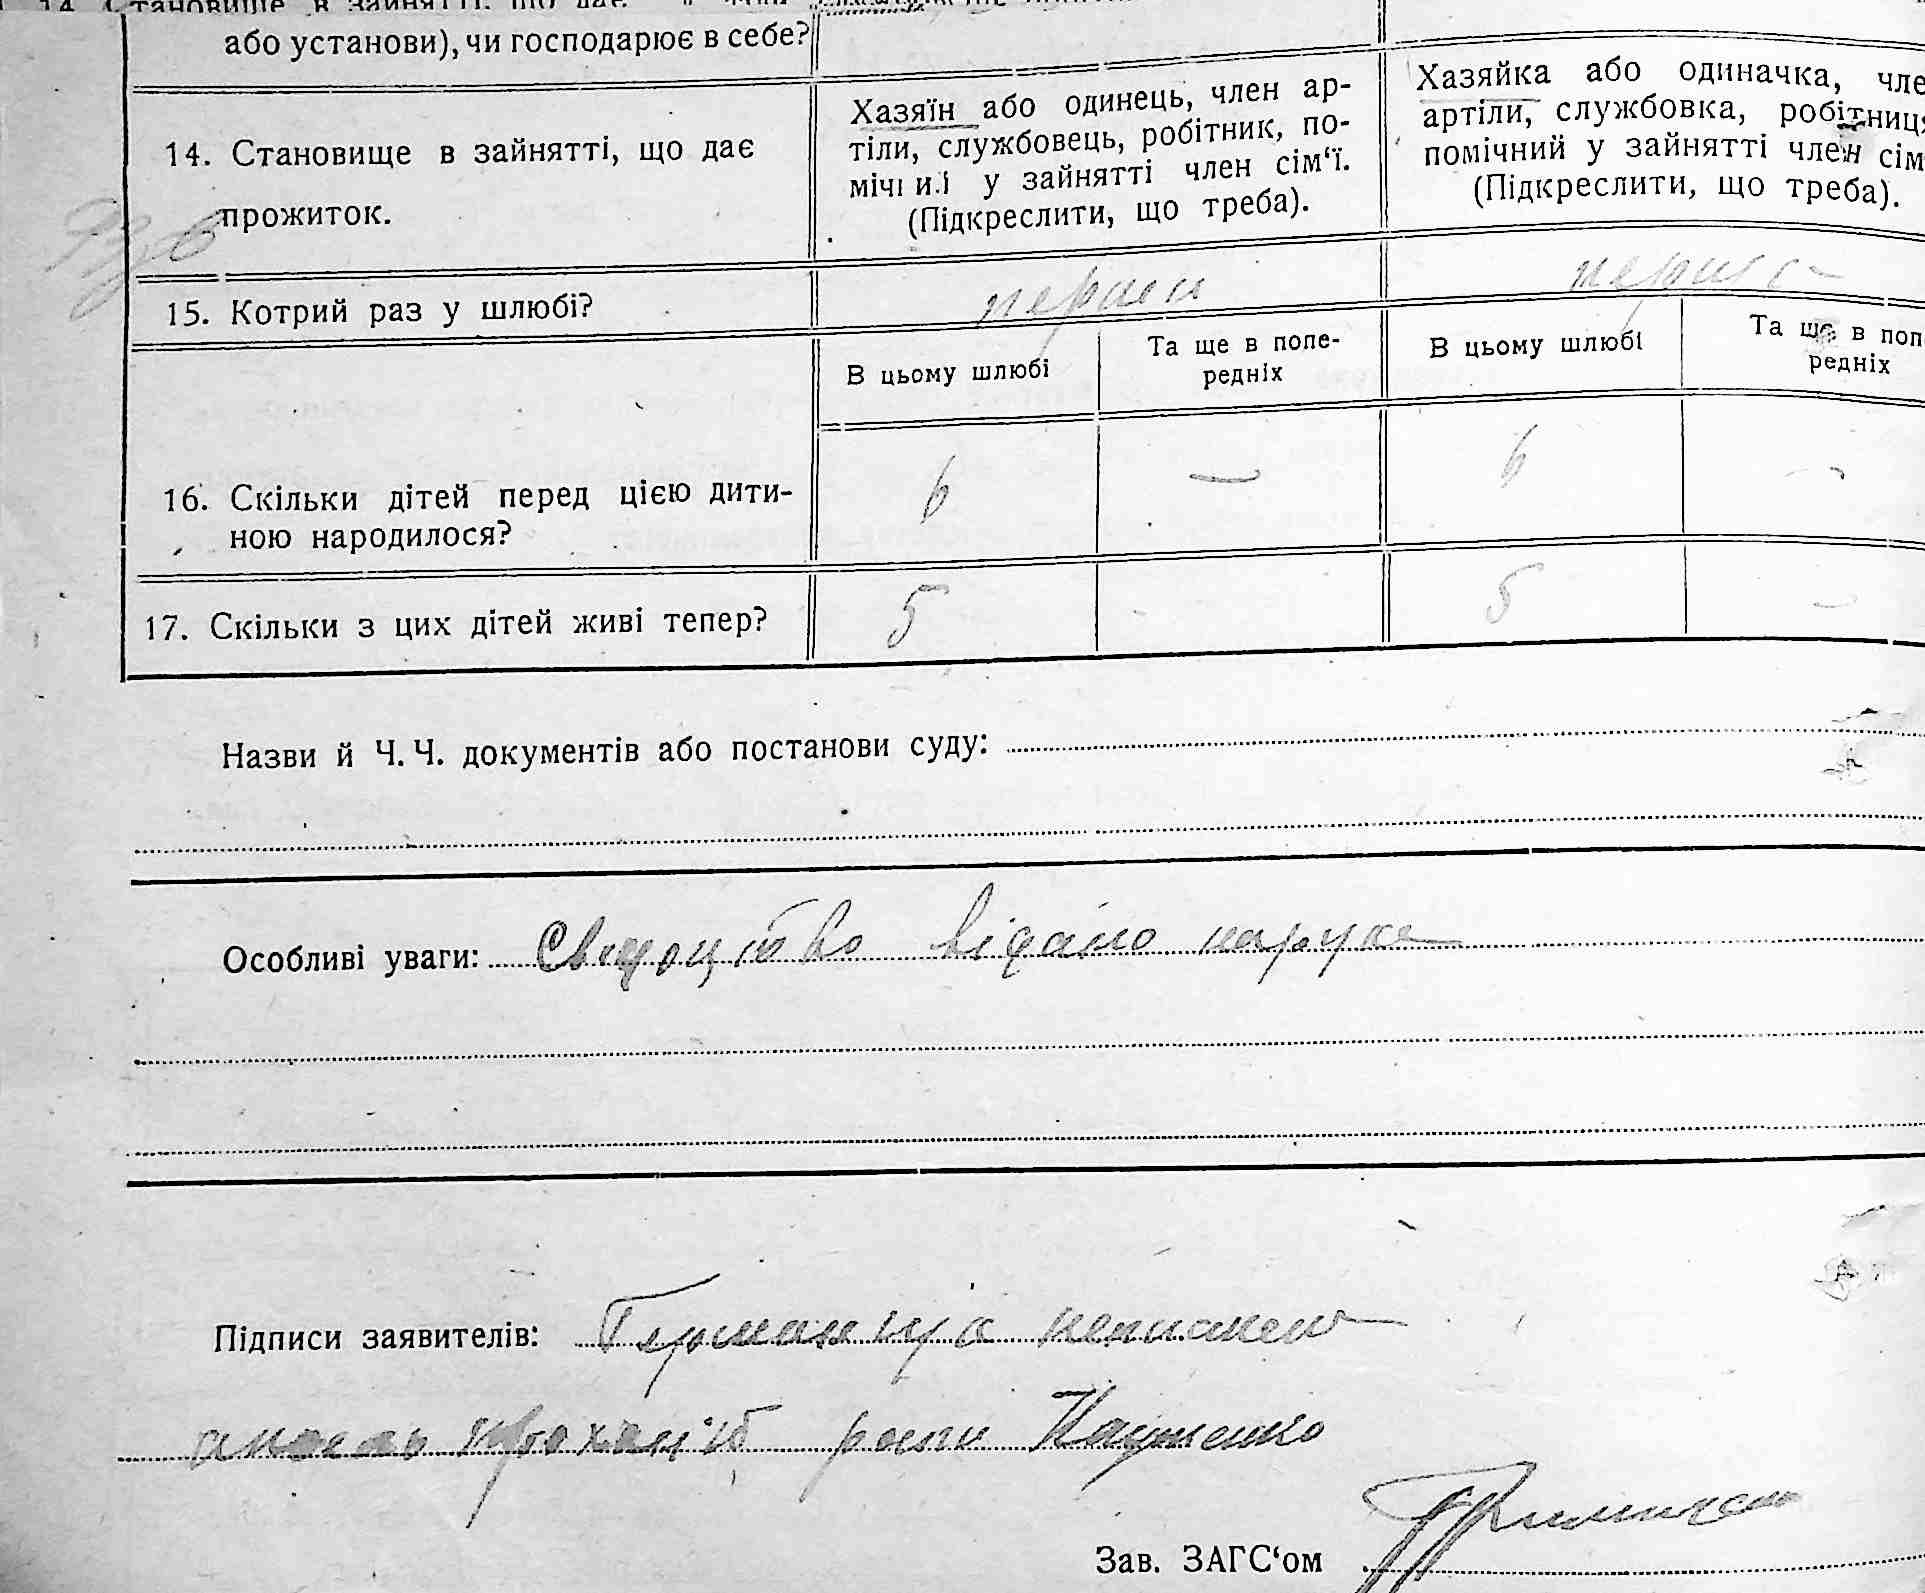 14. Становище в зайнятті, що дає
або установи), чи господарює в себе?
14. Становище в зайнятті, що дає
прожиток.
Хазяїн або одинець, член ар-
тіли, службовець, робітник, по-
мічний у зайнятті член сім‘ї.
(Підкреслити, що треба).
Хазяйка або одиначка, чле
артіли, службовка, робітниця
помічний у зайнятті член сім
(Підкреслити, що треба).
15. Котрий раз у шлюбі?
перший
перша
В цьому шлюбі
Та ще в попе-
редніх
В цьому шлюбі
Та ще в поп
редніх
16. Скільки дітей перед цією дити-
ною народилося?
6 — 6 —
17. Скільки з цих дітей живі тепер?
5 - 5 —
Назви й Ч. Ч. документів або постанови суду:
Особливі уваги: Свідоцтво відано на руки
Підписи заявителів:
Науменко
Зав. ЗАГС‘ом